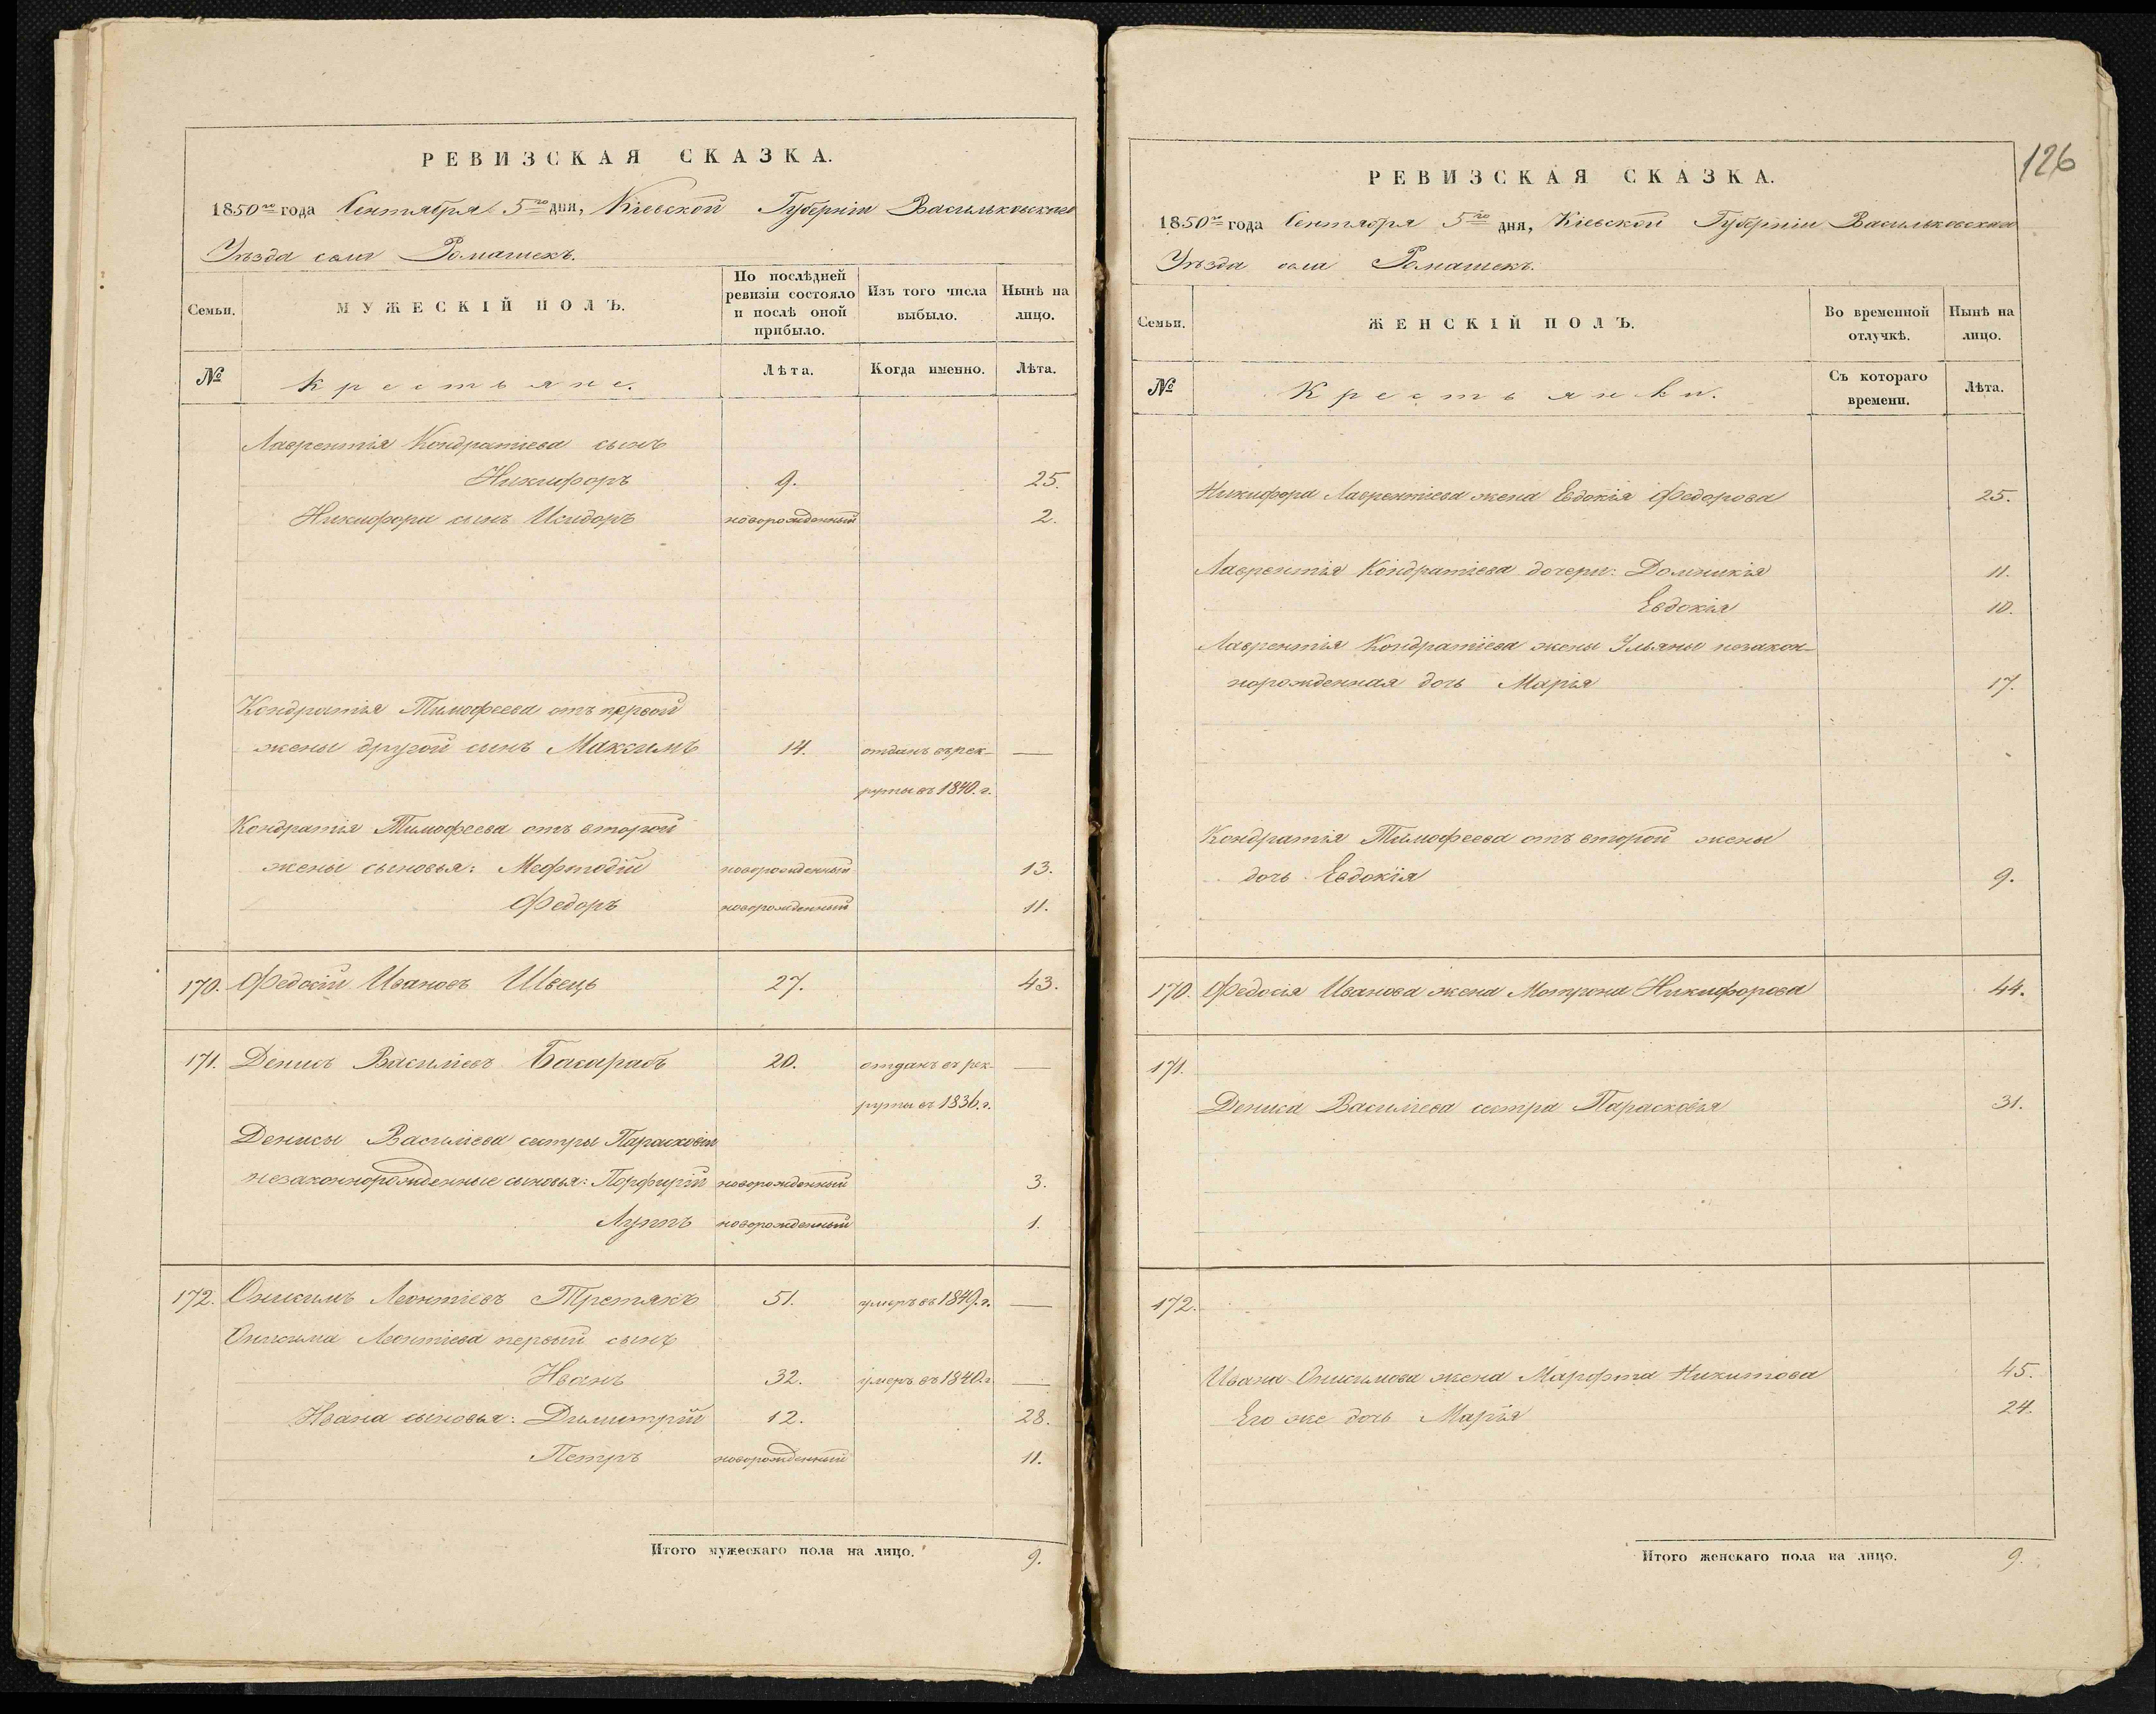 РЕВИЗСКАЯ СКАЗКА.
1850го года Сентября 5го дня, Кіевской Губерніи Васильковскаго
Уѣзда села Ромашекъ.
Семьи. МУЖЕСКІЙ ПОЛЪ. По послѣдней ревизіи состояло и послѣ оной прибыло. Изъ того числа выбыло. Нынѣ на лицо.
№ Крестьяне. Лѣта. Когда именно. Лѣта.
Лаврентія Кондратіева сынъ
Никифоръ 9. 25.
Никифора сынъ Исидоръ новорожденный 2.
Кондратія Тимофеева отъ первой
жены другой сынъ Максимъ 14. отданъ въ рек- —
руты въ 1840. г.
Кондратія Тимофеева отъ второй
жены сыновья: Мефтодій новорожденный 13.
Федоръ новорожденный 11.
170. Федосій Ивановъ Швецъ 27. 43.
171. Денисъ Василіевъ Басарабъ 20. отданъ въ рек- —
руты въ 1836. г.
Дениса Василіева сестры Парасковіи
незаконнорожденные сыновья: Порфирій новорожденный 3.
Луппъ новорожденный 1.
172. Онисимъ Леонтіевъ Третякъ 51. умеръ въ 1849. г. —
Онисима Леонтіева первый сынъ
Иванъ 32. умеръ въ 1840. г —
Ивана сыновья: Димитрій 12. 28.
Петръ новорожденный 11.
Итого мужескаго пола на лицо. 9.
126
РЕВИЗСКАЯ СКАЗКА.
1850го года Сентября 5го дня, Кіевской Губерніи Васильковскаго
Уѣзда села Ромашекъ.
Семьи. ЖЕНСКІЙ ПОЛЪ. Во временной отлучкѣ. Нынѣ на лицо.
№ Крестьянки. Съ котораго времени. Лѣта.
Никифора Лаврентіева жена Евдокія Федорова 25.
Лаврентія Кондратіева дочери: Домникія 11.
Евдокія 10.
Лаврентія Кондратіева жены Ульяны незакон-
норожденная дочь Марія 17.
Кондратія Тимофеева отъ второй жены
дочь Евдокія 9.
170. Федосія Иванова жена Мотрона Никифорова 44.
171.
Дениса Василіева сестра Парасковія 31.
172.
Ивана Онисимова жена Марфта Никитова 45.
Его же дочь Марія 24.
Итого женскаго пола на лицо. 9.